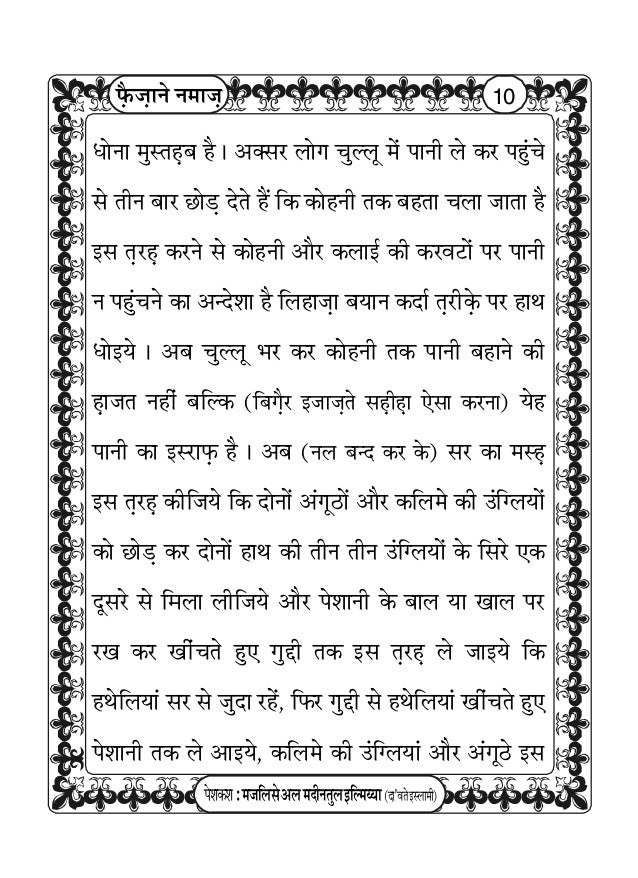 फ़ैज़ाने नमाज़
10
धोना मुस्तह़ब है। अक्सर लोग चुल्लू में पानी ले कर पहुंचे
से तीन बार छोड़ देते हैं कि कोहनी तक बहता चला जाता है
इस त़रह़ करने से कोहनी और कलाई की करवटों पर पानी
न पहुंचने का अन्देशा है लिहाज़ा बयान कर्दा त़रीक़े पर हाथ
धोइये। अब चुल्लू भर कर कोहनी तक पानी बहाने की
ह़ाजत नहीं बल्कि (बिग़ैर इजाज़ते सह़ीह़ा ऐसा करना) येह
पानी का इस्राफ़ है। अब (नल बन्द कर के) सर का मस्ह़
इस त़रह़ कीजिये कि दोनों अंगूठों और कलिमे की उंग्लियों
को छोड़ कर दोनों हाथ की तीन तीन उंग्लियों के सिरे एक
दूसरे से मिला लीजिये और पेशानी के बाल या खाल पर
रख कर खींचते हुए गुद्दी तक इस त़रह़ ले जाइये कि
हथेलियां सर से जुदा रहें, फिर गुद्दी से हथेलियां खींचते हुए
पेशानी तक ले आइये, कलिमे की उंग्लियां और अंगूठे इस
पेशकश : मजलिसे अल मदीनतुल इल्मिय्या (दा'वते इस्लामी)